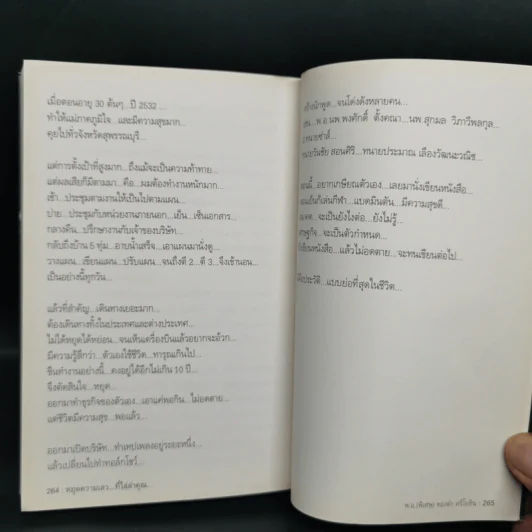 เมื่อตอนอายุ 30 ต้นๆ...ปี 2532 ...
ทำให้แม่ภาคภูมิใจ...และมีความสุขมาก...
คุยไปทั่วจังหวัดสุพรรณบุรี...
แต่การตั้งเป้าที่สูงมาก...ถึงแม้จะเป็นความท้าทาย...
แต่ผลเสียก็มีตามมา...คือ...ผมต้องทำงานหนักมาก...
เช้า...ประชุมตามงานให้เป็นไปตามแผน...
บ่าย...ประชุมกับหน่วยงานภายนอก...เย็น...เซ็นเอกสาร...
กลางคืน...ปรึกษางานกับเจ้าของบริษัท...
กลับถึงบ้าน 5 ทุ่ม...อาบน้ำเสร็จ...เอาแผนมานั่งดู...
วางแผน...เขียนแผน...ปรับแผน...จนถึงตี 2...ตี 3...จึงเข้านอน...
เป็นอย่างนี้ทุกวัน...
แล้วที่สำคัญ...เดินทางเยอะมาก...
ต้องเดินทางทั้งในประเทศและต่างประเทศ...
ไม่ได้หยุดได้หย่อน...จนเห็นเครื่องบินแล้วอยากจะอ้วก...
มีความรู้สึกว่า...ตัวเองใช้ชีวิต...ทารุณเกินไป...
ขืนทำงานอย่างนี้...คงอยู่ได้อีกไม่เกิน 10 ปี...
จึงตัดสินใจ...หยุด...
ออกมาทำธุรกิจของตัวเอง...เอาแค่พอกิน...ไม่อดตาย...
แต่ชีวิตมีความสุข...พอแล้ว...
ออกมาเปิดบริษัท...ทำเทปเพลงอยู่ระยะหนึ่ง...
แล้วเปลี่ยนไปทำทอล์กโชว์...
264 : หยุดความเลว...ที่ไล่ล่าคุณ
สร้างนักพูด...จนโด่งดังหลายคน...
เช่น...พ.อ.นพ.พงศักดิ์ ตั้งคณา...นพ.สุกมล วิภาวีพลกุล...
ทนายวันชัย สอนศิริ...ทนายประมาณ เลืองวัฒนะวณิช...
ตอนนี้...อยากเกษียณตัวเอง...เลยมานั่งเขียนหนังสือ...
ตอนเย็นก็เล่นกีฬา...แบดมินตัน...มีความสุขดี...
อนาคต...จะเป็นยังไงต่อ...ยังไม่รู้...
เศรษฐกิจ...จะเป็นตัวกำหนด...
เขียนหนังสือ...แล้วไม่อดตาย...จะทนเขียนต่อไป...
นี่คือประวัติ...แบบย่อที่สุดในชีวิต...
พ.อ.(พิเศษ) ทองคำ ศรีโยธิน : 265